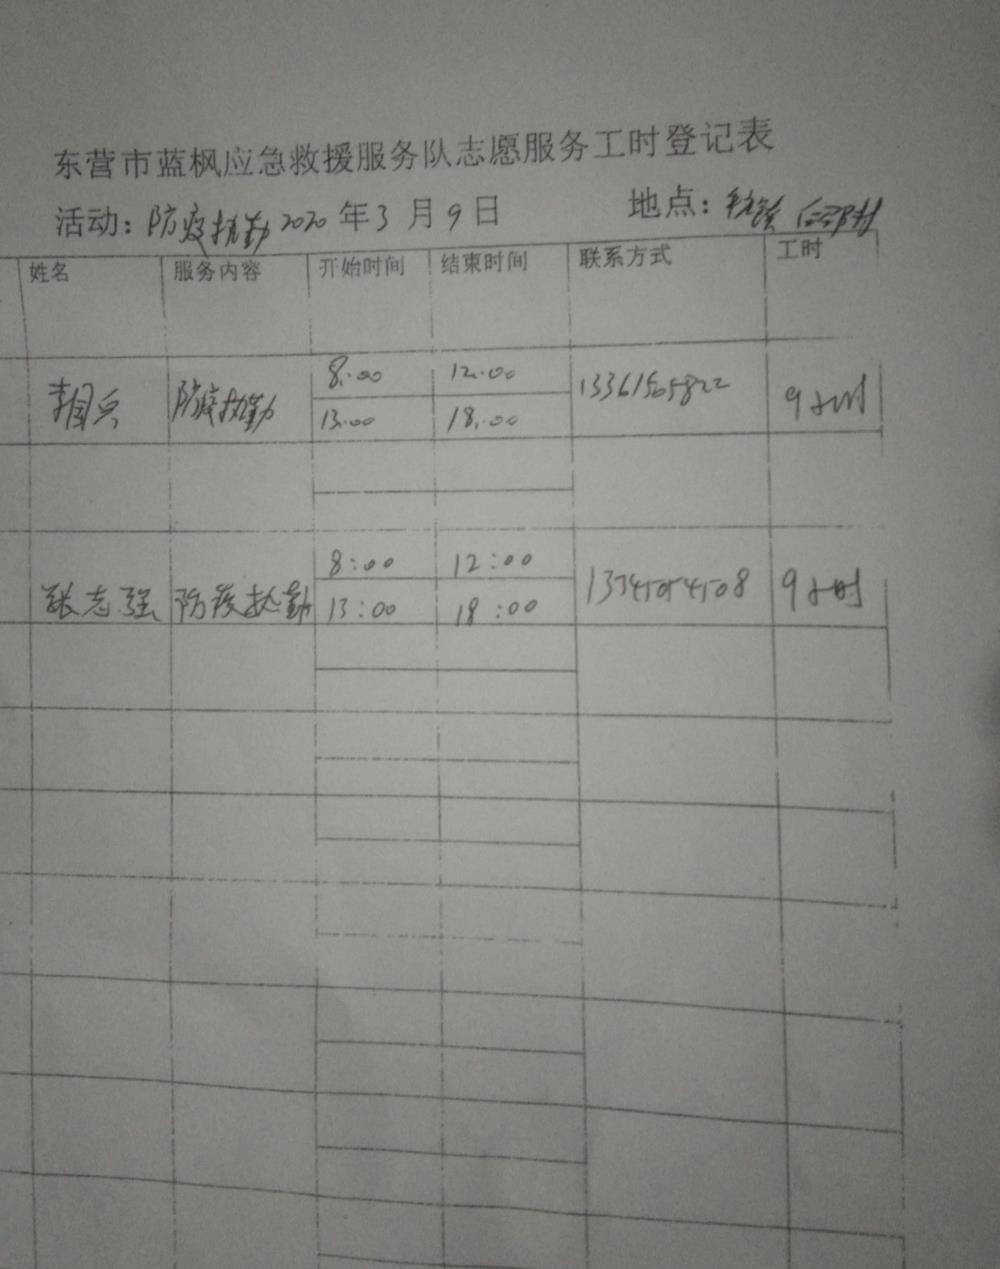 东营市蓝枫应急救援服务队志愿服务工时登记表
活动：防疫执勤 2020 年 3 月 9 日 地点：
姓名 服务内容 开始时间 结束时间 联系方式 工时
8:00 12:00
李国兵 防疫执勤 13361565822 9小时
13:00 18:00
8:00 12:00
张志强 防疫执勤 13345054508 9小时
13:00 18:00